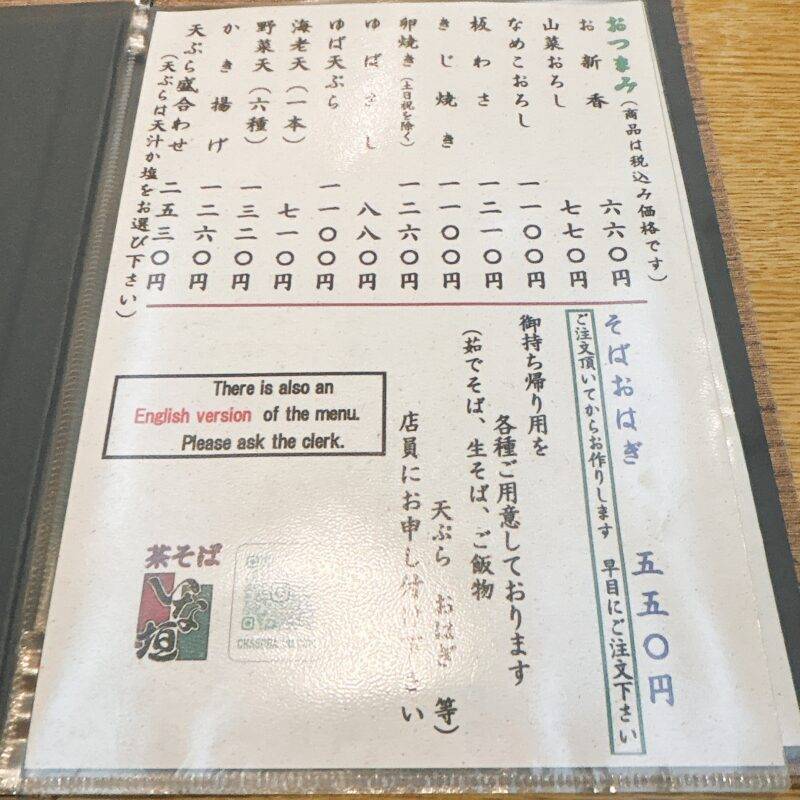 おつまみ(商品は税込み価格です)
お新香 六六〇円
山菜おろし 七七〇円
なめこおろし 一一〇〇円
板わさ 一二一〇円
きじ焼き 一一〇〇円
卵焼き(土日祝を除く) 一二六〇円
ゆばさし 八八〇円
ゆば天ぷら 一一〇〇円
海老天(一本) 七一〇円
野菜天(六種) 一三二〇円
かき揚げ 一二六〇円
天ぷら盛合わせ 二五三〇円
(天ぷらは天汁か塩をお選び下さい)
そばおはぎ 五五〇円
ご注文頂いてからお作りします 早目にご注文下さい
御持ち帰り用を
各種ご用意しております
(茹でそば、生そば、ご飯物
天ぷら おはぎ 等)
店員にお申し付け下さい
There is also an
English version of the menu.
Please ask the clerk.
茶そば
いな垣